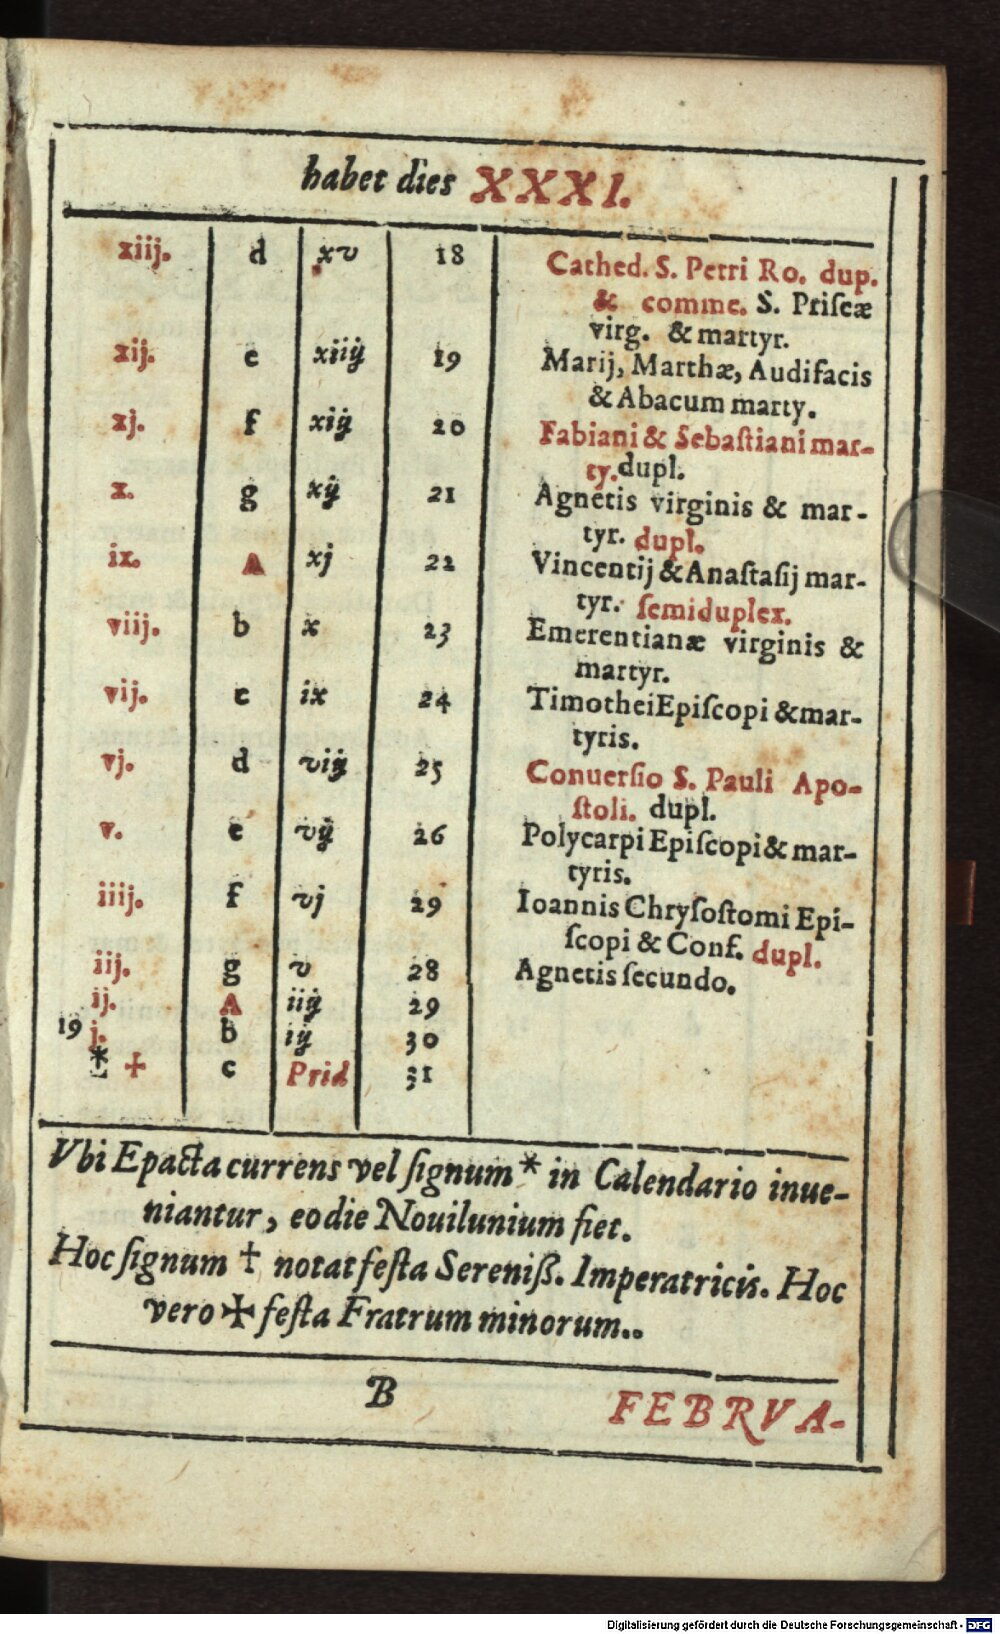 habet dies XXXI.
xiij. d xv 18 Cathed. S. Petri Ro. dup.
& comme. S. Priſcæ
virg. & martyr.
xij. e xiiij 19 Marij, Marthæ, Audifacis
& Abacum marty.
xj. f xiij 20 Fabiani & Sebaſtiani mar-
ty. dupl.
x. g xij 21 Agnetis virginis & mar-
tyr. dupl.
ix. A xj 22 Vincentij & Anaſtaſij mar-
tyr. ſemiduplex.
viij. b x 23 Emerentianæ virginis &
martyr.
vij. c ix 24 Timothei Epiſcopi & mar-
tyris.
vj. d viij 25 Conuerſio S. Pauli Apo-
ſtoli. dupl.
v. e vij 26 Polycarpi Epiſcopi & mar-
tyris.
iiij. f vj 29 Ioannis Chryſoſtomi Epi-
ſcopi & Conf. dupl.
iij. g v 28 Agnetis ſecundo.
ij. A iiij 29
19 j. b iij 30
* ✠ c Prid 31
Vbi Epacta currens vel ſignum * in Calendario inue-
niantur, eo die Nouilunium fiet.
Hoc ſignum † notat feſta Sereniß. Imperatricis. Hoc
vero ✠ feſta Fratrum minorum..
B FEBRVA-
Digitalisierung gefördert durch die Deutsche Forschungsgemeinschaft - DFG